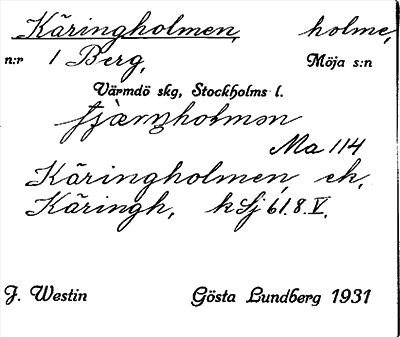 Käringholmen, holme,
n:r 1 Berg, Möja s:n
Värmdö skg, Stockholms l.
Ma 114
Käringholmen, ek.
Käringh, kSj 61.8.V.
J. Westin Gösta Lundberg 1931